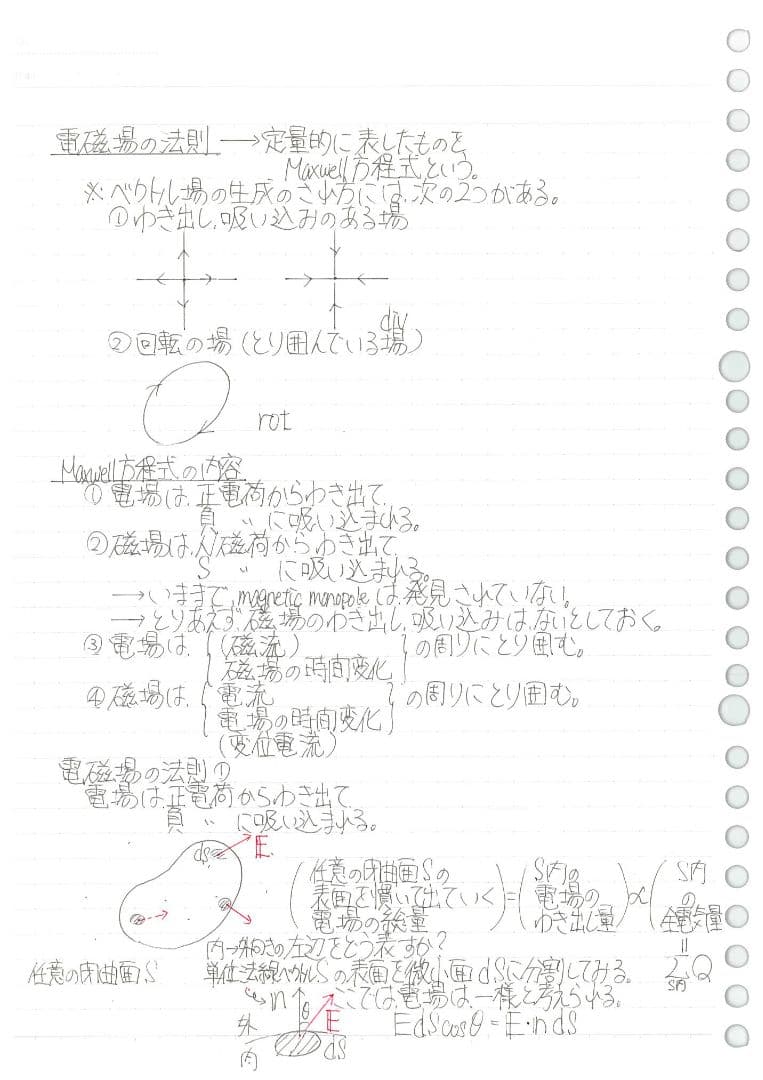 電磁場の法則 → 定量的に表したものを
Maxwell方程式という。
※ベクトル場の生成のされ方には、次の2つがある。
①わき出し、吸い込みのある場
div
②回転の場(とり囲んでいる場)
rot
Maxwell方程式の内容
①電場は、正電荷からわき出て、
負 〃 に吸い込まれる。
②磁場は、N磁荷からわき出て
S 〃 に吸い込まれる。
→いままで、magnetic monopoleは、発見されていない。
→とりあえず、磁場のわき出し、吸い込みは、ないとしておく。
③電場は、{(磁流) 磁場の時間変化}の周りにとり囲む。
④磁場は、{電流 電場の時間変化}の周りにとり囲む。
(変位電流)
電磁場の法則①
電場は、正電荷からわき出て、
負 〃 に吸い込まれる。
dS E
(任意の閉曲面Sの表面を貫いて出ていく電場の総量)=(S内の電場のわき出し量)∝(S内の全電気量)
内→外向きの左辺をどう表すか?
任意の閉曲面S 単位法線ベクトル Sの表面を微小面dSに分割してみる。 = ΣQ S内
n θ ここでは、電場は、一様と考えられる。
外 E EdScosθ=E・ndS
内 dS